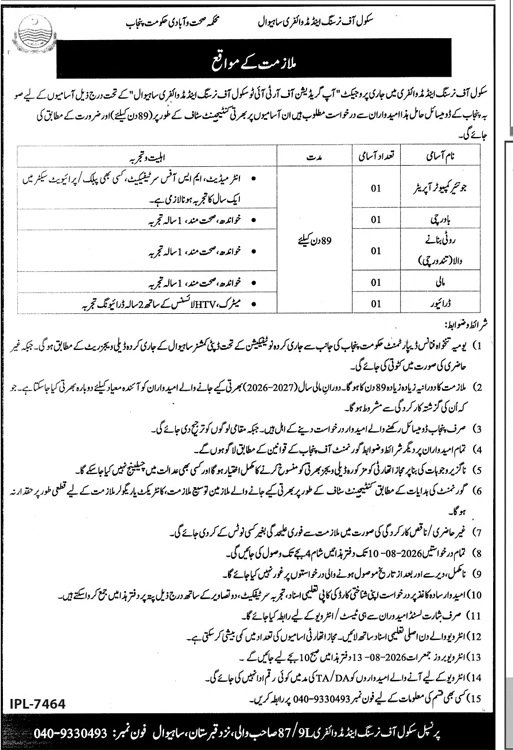 سکول آف نرسنگ اینڈ مڈوائفری ساہیوال محکمہ صحت و آبادی حکومت پنجاب
ملازمت کے مواقع
سکول آف نرسنگ اینڈ مڈوائفری میں جاری پروجیکٹ "اپ گریڈیشن آف آر ٹی آئی ٹو سکول آف نرسنگ اینڈ مڈوائفری ساہیوال" کے تحت درج ذیل آسامیوں کے لیے صو
بہ پنجاب کے ڈومیسائل حامل ہذا امیدواران سے درخواست مطلوب ہیں ان آسامیوں پر بھرتی کنٹیجینٹ سٹاف کے طور پر (89 دن کیلئے) اور ضرورت کے مطابق کی
جائے گی۔
نام آسامی تعداد آسامی مدت اہلیت و تجربہ
جونئیر کمپیوٹر آپریٹر 01 • انٹرمیڈیٹ، ایم ایس آفس سرٹیفکیٹ، کسی بھی پبلک/پرائیویٹ سیکٹر میں
ایک سال کا تجربہ ہونا لازمی ہے۔
باورچی 01 • خواندہ، صحت مند، 1 سالہ تجربہ
روٹی بنانے
والا (تندورچی) 01 89 دن کیلئے • خواندہ، صحت مند، 1 سالہ تجربہ
مالی 01 • خواندہ، صحت مند، 1 سالہ تجربہ
ڈرائیور 01 • میٹرک، HTV لائسنس کے ساتھ 2 سالہ ڈرائیونگ تجربہ
شرائط و ضوابط:
1) یومیہ تنخواہ فنانس ڈیپارٹمنٹ حکومت پنجاب کی جانب سے جاری کردہ نوٹیفکیشن کے تحت ڈپٹی کمشنر ساہیوال کے جاری کردہ ڈیلی ویجز ریٹ کے مطابق ہو گی۔ جبکہ غیر
حاضری کی صورت میں کٹوتی کی جائے گی۔
2) ملازمت کا دورانیہ زیادہ زیادہ 89 دن کا ہو گا۔ دوران مالی سال (2027-2026) بھرتی کیے جانے والے امیدواران کو آئندہ معیاد کیلئے دوبارہ بھرتی کیا جا سکتا ہے۔ جو
کہ اُن کی گزشتہ کارکردگی سے مشروط ہو گا۔
3) صرف پنجاب ڈومیسائل رکھنے والے امیدوار درخواست دینے کے اہل ہیں۔ جبکہ مقامی لوگوں کو ترجیح دی جائے گی۔
4) تمام امیدواران پر دیگر شرائط و ضوابط گورنمنٹ آف پنجاب کے قوانین کے مطابق لاگو ہوں گے۔
5) ناگزیر وجوہات کی بنا پر مجاز اتھارٹی کو مزکورہ ڈیلی ویجز بھرتی کو منسوخ کرنے کا مکمل اختیار ہو گا اور کسی بھی عدالت میں چیلینج نہیں کیا جا سکے گا۔
6) گورنمنٹ کی ہدایات کے مطابق کنٹیجینٹ سٹاف کے طور پر بھرتی کیے جانے والے ملازمین توسیع ملازمت، کانٹریکٹ یا ریگولر ملازمت کے لیے قطعی طور پر حقدار نہ
ہو گا۔
7) غیر حاضری / ناقص کارکردگی کی صورت میں ملازمت سے فوری علیحدگی بغیر کسی نوٹس کے کر دی جائے گی۔
8) تمام درخواستیں 2026-08-10 تک دفتر ہذا میں شام 4 بجے تک وصول کی جائیں گی۔
9) نامکمل، دیر سے اور بعد از تاریخ موصول ہونے والی درخواستوں پر غور نہیں کیا جائے گا۔
10) امیدوار سادہ کاغذ پر درخواست اپنی شناختی کارڈ کی کاپی تعلیمی اسناد، تجربہ سرٹیفکیٹ، دو تصاویر کے ساتھ درج ذیل پتہ پر دفتر ہذا میں جمع کروا سکتے ہیں۔
11) صرف شارٹ لسٹڈ امیدواران سے ہی ٹیسٹ/انٹرویو کے لیے رابطہ کیا جائے گا۔
12) انٹرویو والے دن اصلی تعلیمی اسناد ساتھ لائیں۔ مجاز اتھارٹی آسامیوں کی تعداد میں کمی بیشی کر سکتی ہے۔
13) انٹرویو بروز جمعرات 2026-08-13 دفتر ہذا میں صبح 10 بجے لیے جائیں گے۔
14) انٹرویو کے لیے آنے والے امیدواروں کو TA/DA کی مد میں کوئی رقم ادا نہیں کی جائے گی۔
15) کسی بھی قسم کی معلومات کے لیے فون نمبر 040-9330493 پر رابطہ کریں۔
IPL-7464
پرنسپل سکول آف نرسنگ اینڈ مڈوائفری 87/9L صاحب والی، نزد قبرستان، ساہیوال فون نمبر: 040-9330493